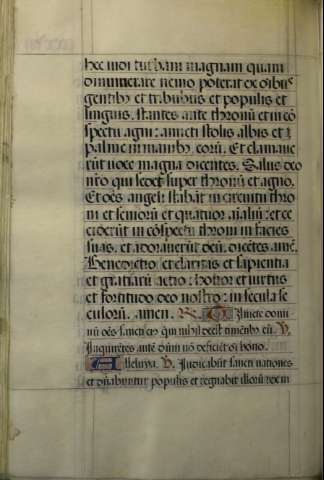 hec vidi turbam magnam quam
dinumerare nemo poterat ex oībus
gentibꝫ et tribubus et populis et
linguis. stantes ante thronū et in cō
spectu agni: amicti stolis albis et
palme in manibꝫ eorū. Et clamaue
rūt uoce magna dicentes. Salus deo
nr̄o qui sedet super thronū et agno.
Et oēs angeli stabāt in circuitu thro
ni et seniorū et quatuor aīaliū: et ce
ciderūt in cōspectu throni in facies
suas. et adorauerūt deū. dicētes amē.
Benedictio et claritas et sapientia
et gratiarū actio: honor et uirtus
et fortitudo deo nostro: in secula se
culorū. amen. Timete domi
nū oēs sancti eiꝰ qm̄ nihil deest timētibꝫ eū. V̄.
Inquirētes autē dūm nō deficiēt oī bono.
Alleluya. V̄. Iudicabūt sancti nationes
et dn̄abuntur populis et regnabit illorū rex in